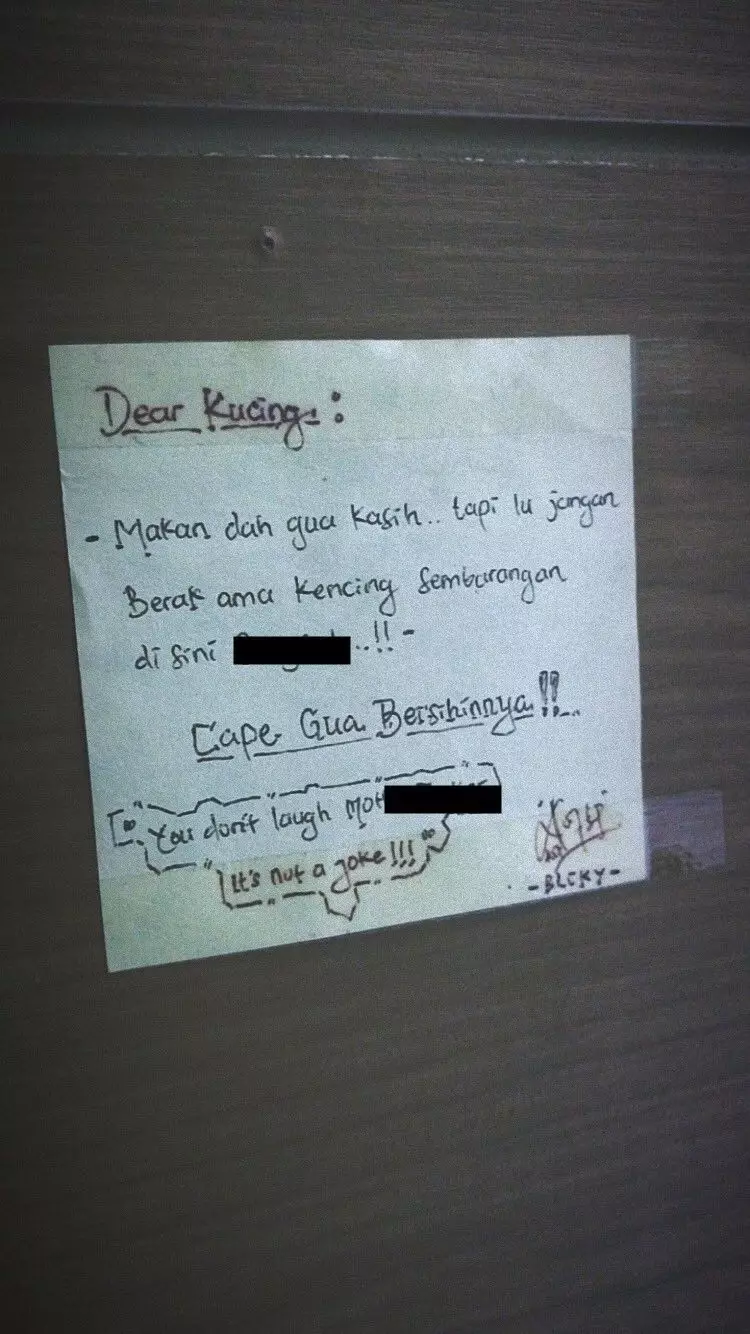 Dear Kucing :
- Makan dah gua kasih.. tapi lu jangan
Berak ama kencing sembarangan
di sini ..!! -
Cape Gua Bersihinnya !!
You don't laugh
"It's not a joke !!!"
- BLCKY -